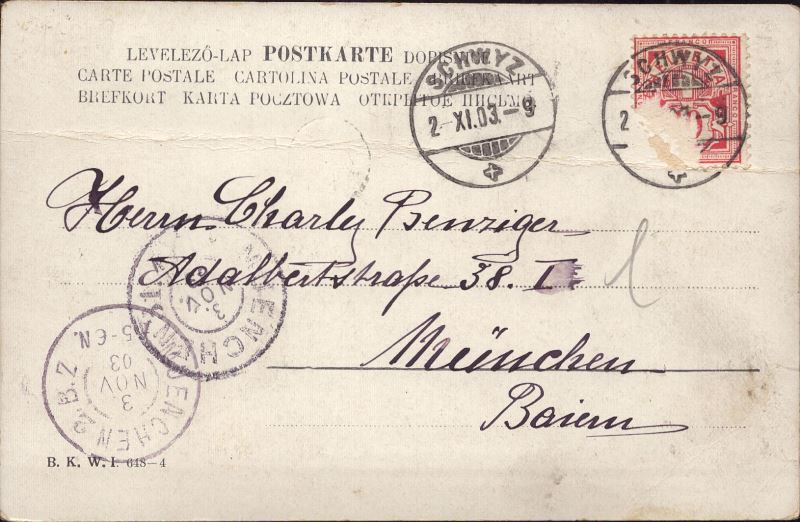 LEVELEZŐ-LAP POSTKARTE DOPISNICE
CARTE POSTALE CARTOLINA POSTALE BRIEFKAART
BREFKORT KARTA POCZTOWA ОТКРЫТОЕ ПИСЬМО
SCHWYZ
2-XI.03.-9
SCHWYZ
2 -9
Herrn Charly Benziger
Adalbertstraße 38. I
München
Baiern
MUENCHEN
3. NOV.
MUENCHEN 2. B.Z.
3 NOV 03
5-6N.
B. K. W. I. 648-4